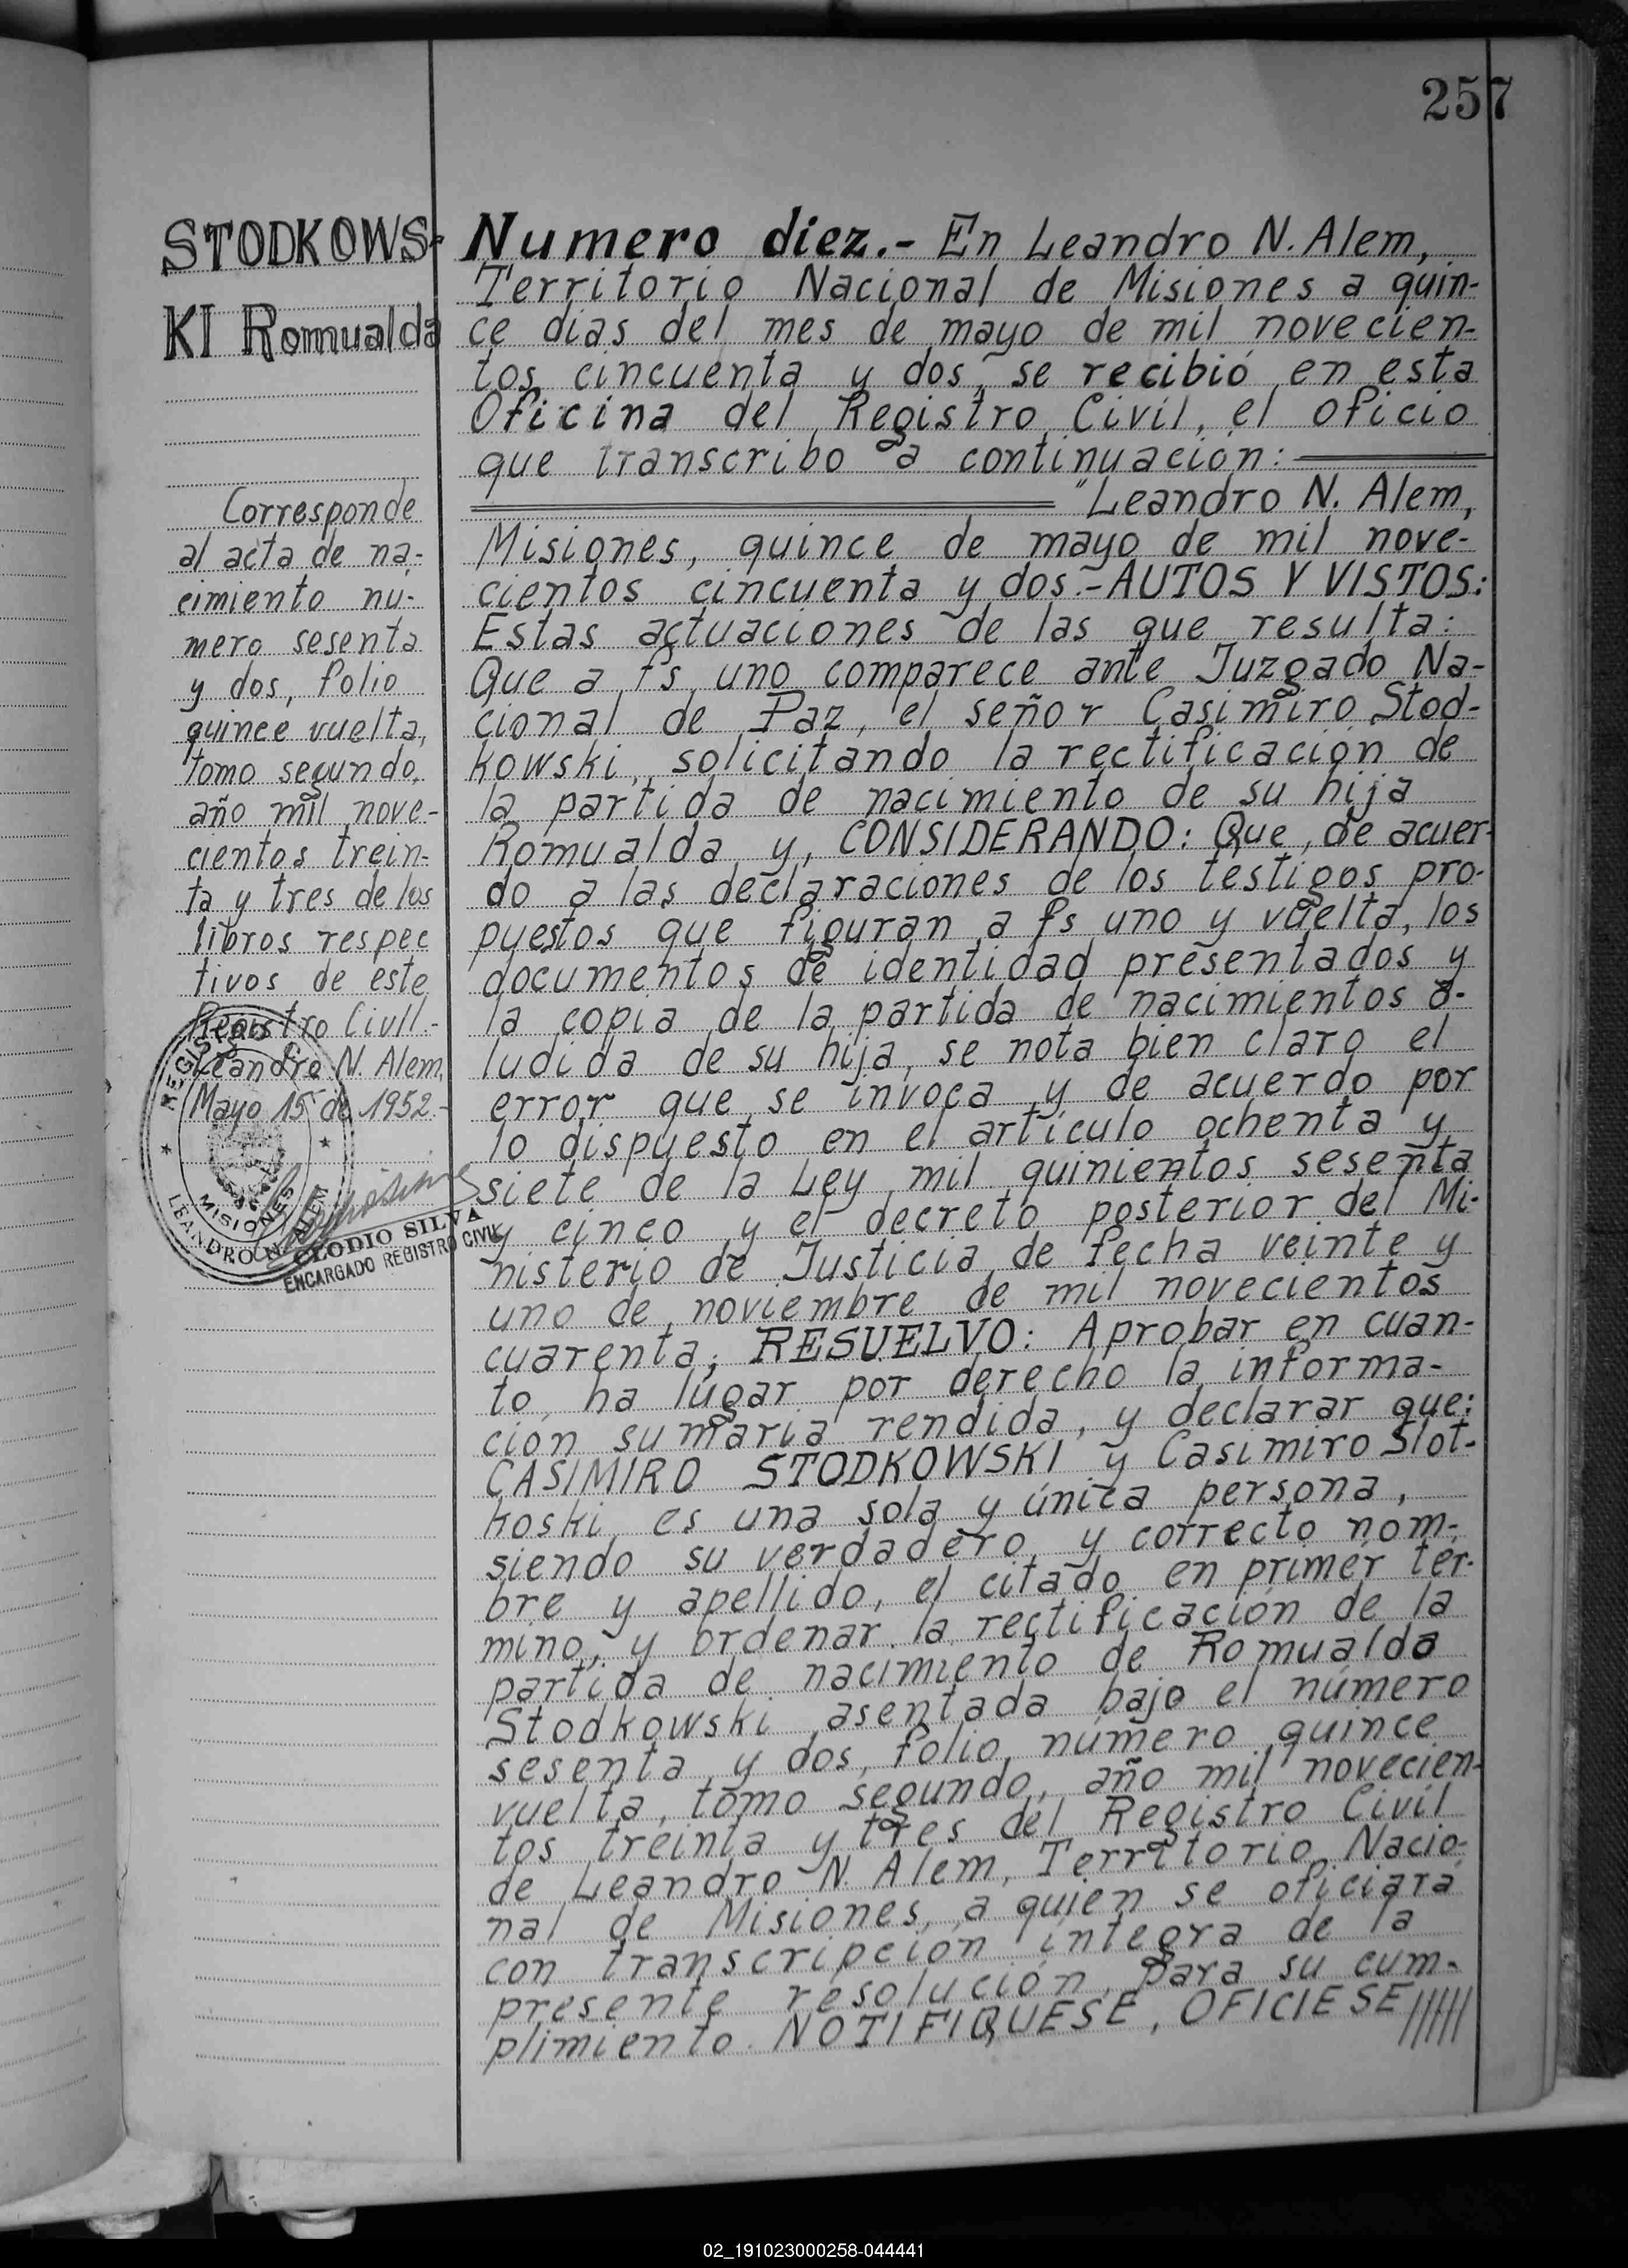 257
STODKOWS-
KI Romualda
Corresponde
al acta de na-
cimiento nu-
mero sesenta
y dos, folio
quince vuelta,
tomo segundo,
año mil nove-
cientos trein-
ta y tres de los
libros respec
tivos de este
Registro Civil.-
Leandro N. Alem,
Mayo 15 de 1952.-
REGISTRO
MISIONES
LEANDRO N. ALEM
CLODIO SILVA
ENCARGADO REGISTRO CIVIL
Numero diez.- En Leandro N. Alem,
Territorio Nacional de Misiones a quin-
ce dias del mes de mayo de mil novecien-
tos cincuenta y dos, se recibió en esta
Oficina del Registro Civil, el oficio
que transcribo a continuación:
"Leandro N. Alem,
Misiones, quince de mayo de mil nove-
cientos cincuenta y dos.- AUTOS Y VISTOS:
Estas actuaciones de las que resulta:
Que a fs uno comparece ante Juzgado Na-
cional de Paz, el señor Casimiro Stod-
kowski, solicitando la rectificación de
la partida de nacimiento de su hija
Romualda y, CONSIDERANDO: Que, de acuer-
do a las declaraciones de los testigos pro-
puestos que figuran a fs uno y vuelta, los
documentos de identidad presentados y
la copia de la partida de nacimientos a-
ludida de su hija, se nota bien claro el
error que se invoca y de acuerdo por
lo dispuesto en el artículo ochenta y
siete de la Ley mil quinientos sesenta
y cinco y el decreto posterior del Mi-
nisterio de Justicia de fecha veinte y
uno de noviembre de mil novecientos
cuarenta; RESUELVO: Aprobar en cuan-
to ha lugar por derecho la informa-
ción sumaria rendida, y declarar que:
CASIMIRO STODKOWSKI y Casimiro Slot-
koski, es una sola y única persona,
siendo su verdadero y correcto nom-
bre y apellido, el citado en primer tér-
mino, y ordenar la rectificación de la
partida de nacimiento de Romualda
Stodkowski asentada bajo el número
sesenta y dos, folio número quince
vuelta, tomo segundo, año mil novecien-
tos treinta y tres del Registro Civil
de Leandro N. Alem, Territorio Nacio-
nal de Misiones, a quien se oficiará
con transcripción íntegra de la
presente resolución, para su cum-
plimiento. NOTIFIQUESE, OFICIESE//////
02_191023000258-044441